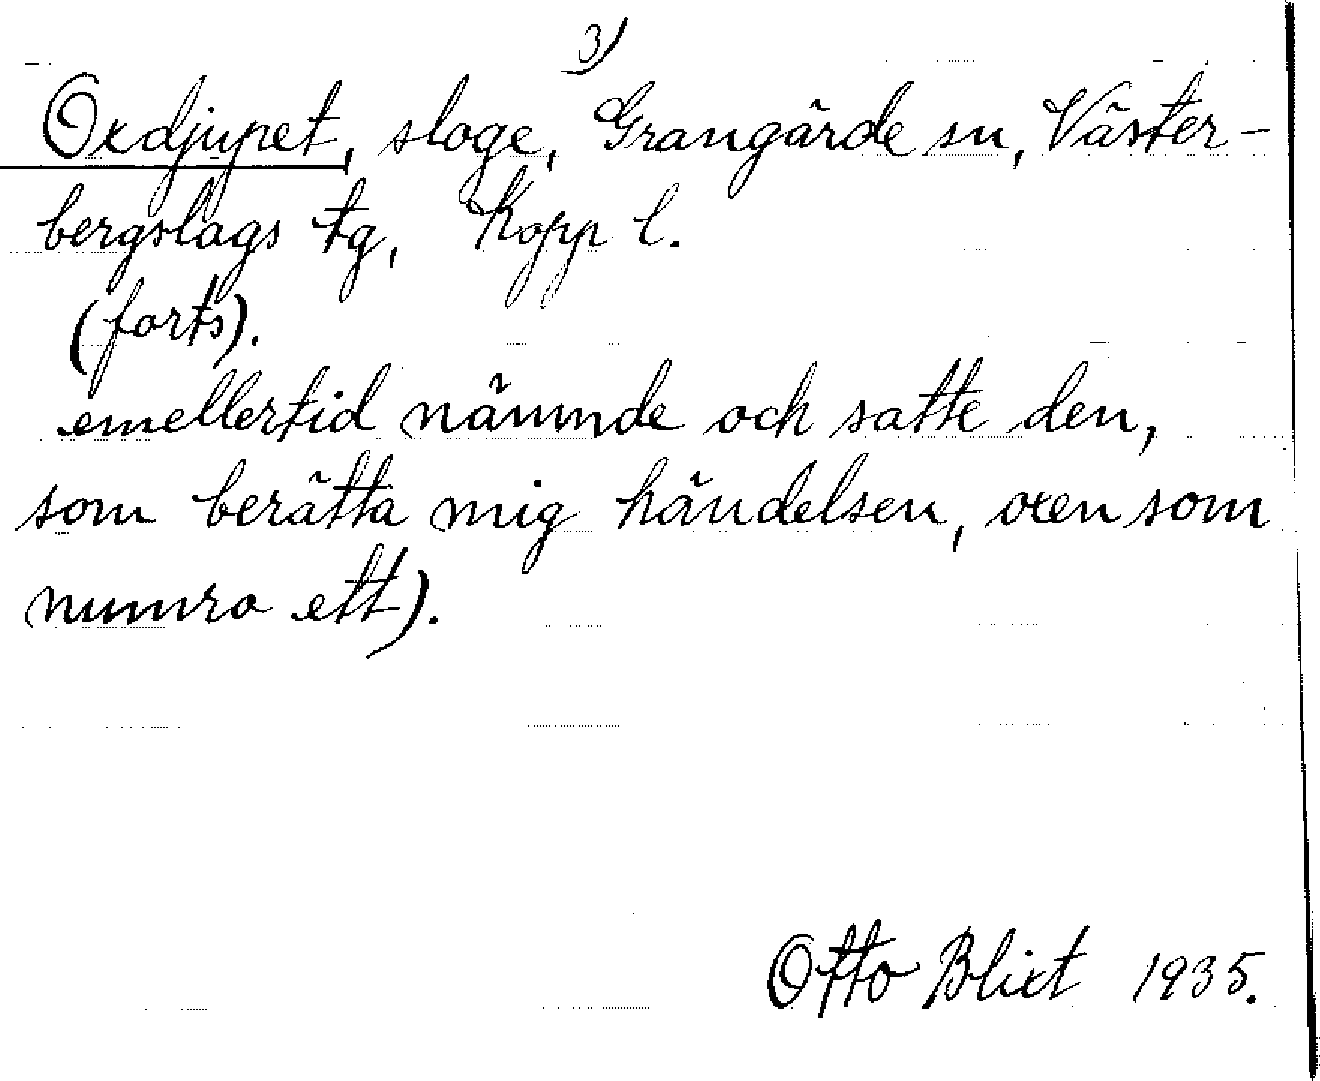 3)
Oxdjupet, sloge, Grangärde sn, Väster-
bergslags tg, Kopp l.
(forts).
emellertid nämnde och satte den,
som berätta mig händelsen, oxen som
numro ett).
Otto Blixt 1935.